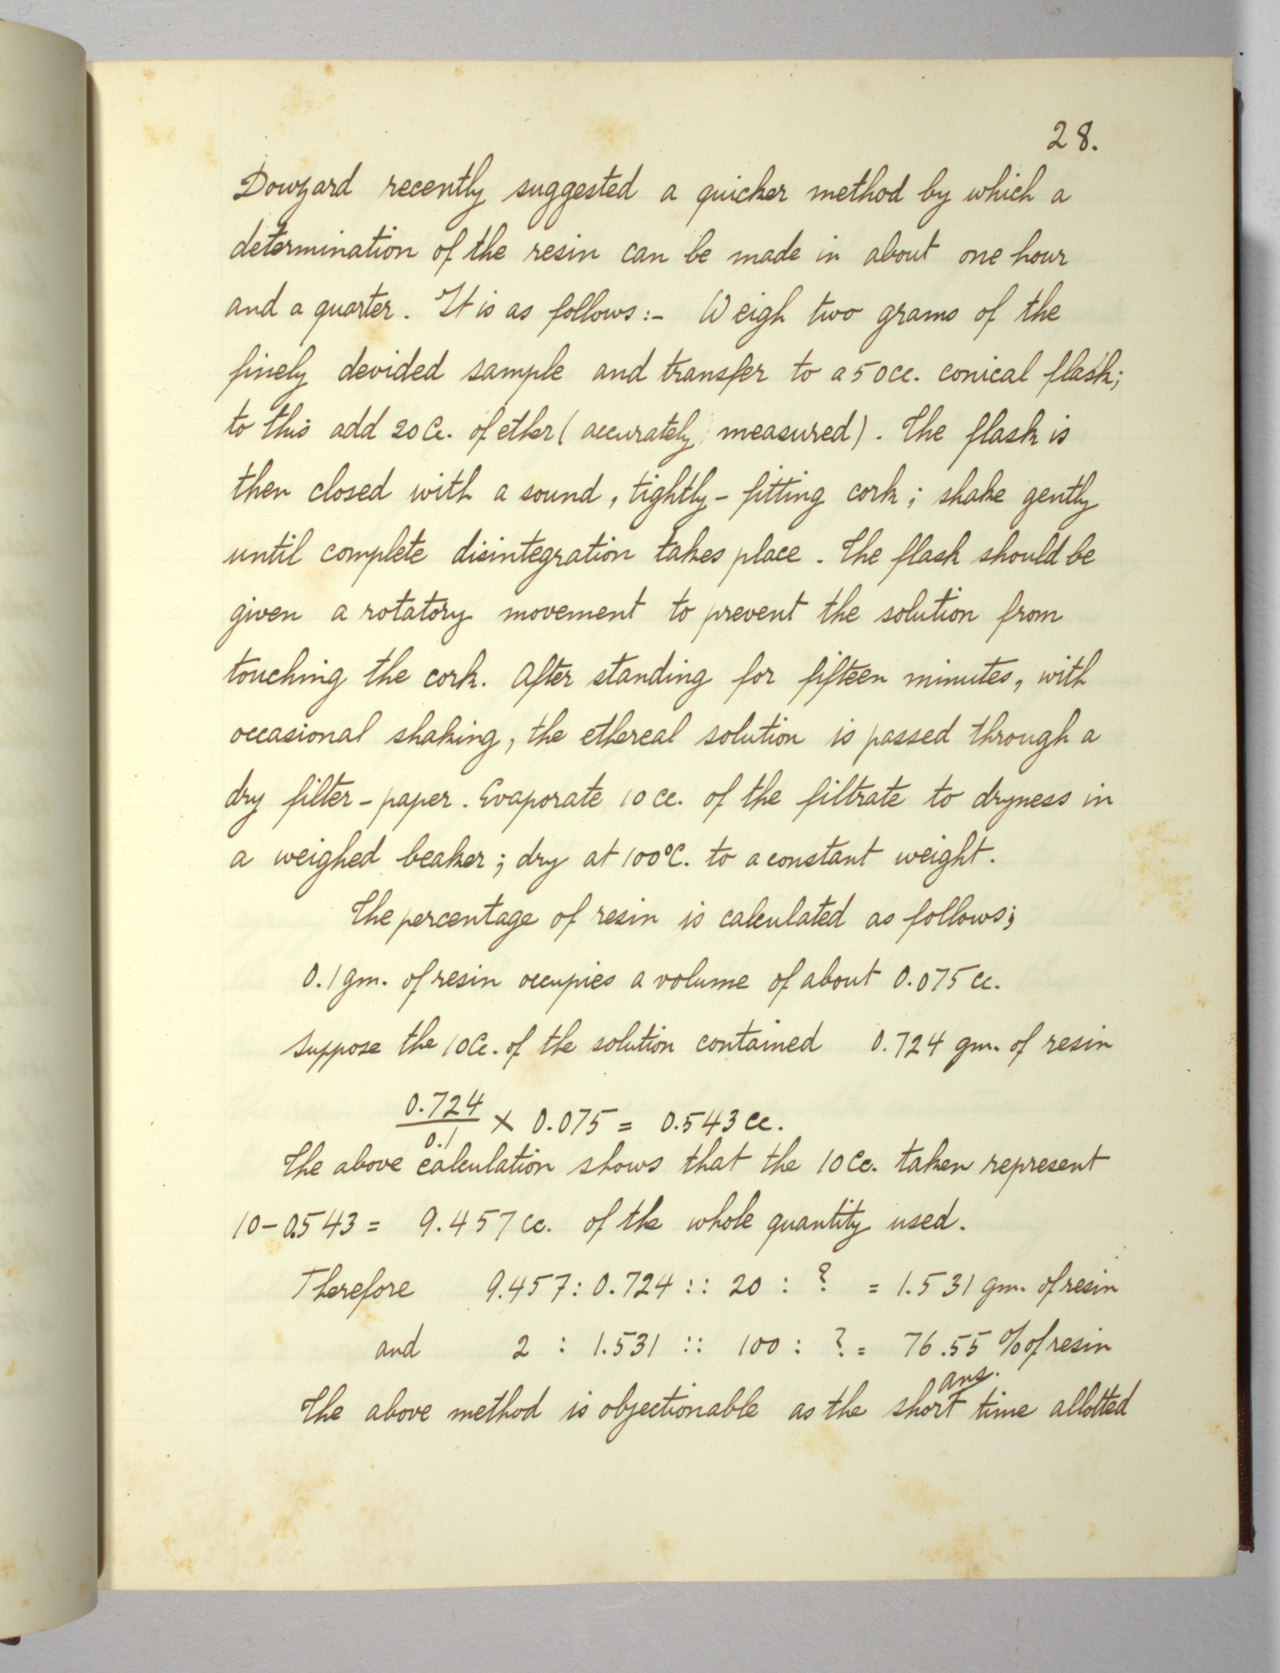 28.
Dowzard recently suggested a quicker method by which a
determination of the resin can be made in about one hour
and a quarter. It is as follows:- Weigh two grams of the
finely devided sample and transfer to a 50cc. conical flask;
to this add 20Cc. of ether (accurately measured). The flask is
then closed with a sound, tightly-fitting cork; shake gently
until complete disintegration takes place. The flask should be
given a rotatory movement to prevent the solution from
touching the cork. After standing for fifteen minutes, with
occasional shaking, the ethereal solution is passed through a
dry filter-paper. Evaporate 10cc. of the filtrate to dryness in
a weighed beaker; dry at 100°C. to a constant weight.
The percentage of resin is calculated as follows;
0.1gm. of resin occupies a volume of about 0.075cc.
Suppose the 10Cc. of the solution contained 0.724 gm. of resin
0.724/0.1 × 0.075 = 0.543 cc.
The above calculation shows that the 10Cc. taken represent
10-0.543 = 9.457cc. of the whole quantity used.
Therefore 9.457 : 0.724 :: 20 : ? = 1.531 gm. of resin
and 2 : 1.531 :: 100 : ? = 76.55 % of resin
ans.
The above method is objectionable as the short time allotted